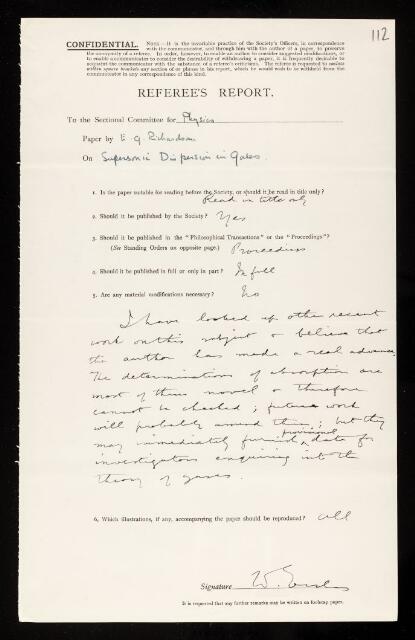 112
CONFIDENTIAL. NOTE.—It is the invariable practice of the Society's Officers, in correspondence
with the communicator, and through him with the author of a paper, to preserve
the anonymity of a referee. In order, however, to enable an author to consider suggested modifications, or
to enable a communicator to consider the desirability of withdrawing a paper, it is frequently desirable to
acquaint the communicator with the substance of a referee's criticisms. The referee is requested to
within square brackets any section of or phrase in his report, which he would wish to be withheld from the
communicator in any correspondence of this kind.
REFEREE'S REPORT.
To the Sectional Committee for Physics
Paper by E G Richardson
On Supersonic Dispersion in Gases.
1. Is the paper suitable for reading before the Society, or should it be read in title only?
Read in title only
2. Should it be published by the Society? Yes
3. Should it be published in the "Philosophical Transactions" or the "Proceedings"?
(See Standing Orders on opposite page.) Proceedings
4. Should it be published in full or only in part? In full
5. Are any material modifications necessary? No
I have looked up other recent
work on this subject & believe that
the author has made a real advance.
The determinations of absorption are
most of them novel & therefore
cannot be checked; future work
will probably amend them; but they
may immediately furnish provisional data for
investigators enquiring into the
theory of gases.
6. Which illustrations, if any, accompanying the paper should be reproduced? all
Signature W.
It is requested that any further remarks may be written on foolscap paper.